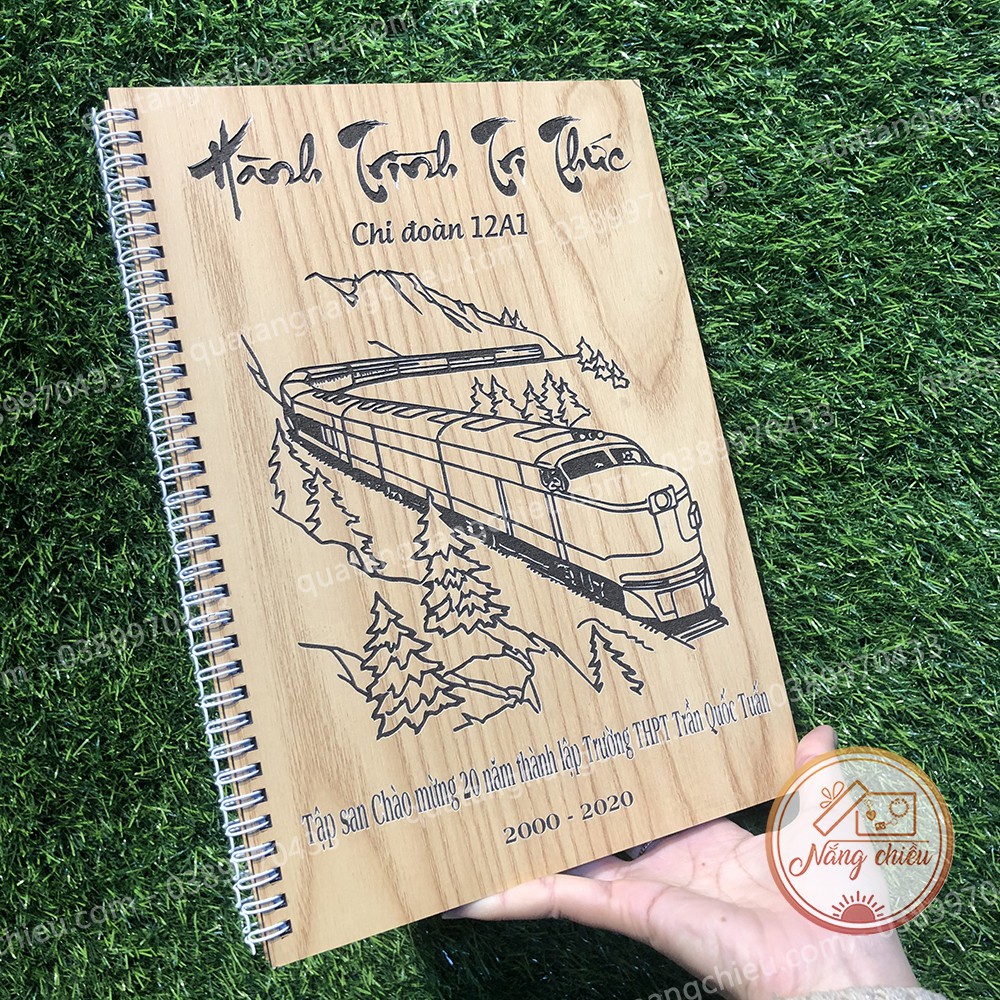 Hành Trình Tri Thức
Chi đoàn 12A1
Tập san Chào mừng 20 năm thành lập Trường THPT Trần Quốc Tuấn
2000 - 2020
Nắng chiều
quatangnangchieu.com - 0389970493